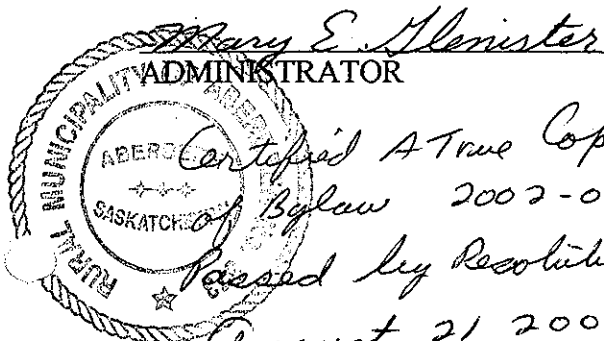 Mary E. Glenister
ADMINISTRATOR
RURAL MUNICIPALITY OF ABER
ABERD
SASKATCH
Certified A True Cop
of Bylaw 2002-0
Passed by Resoluti
August 21 200